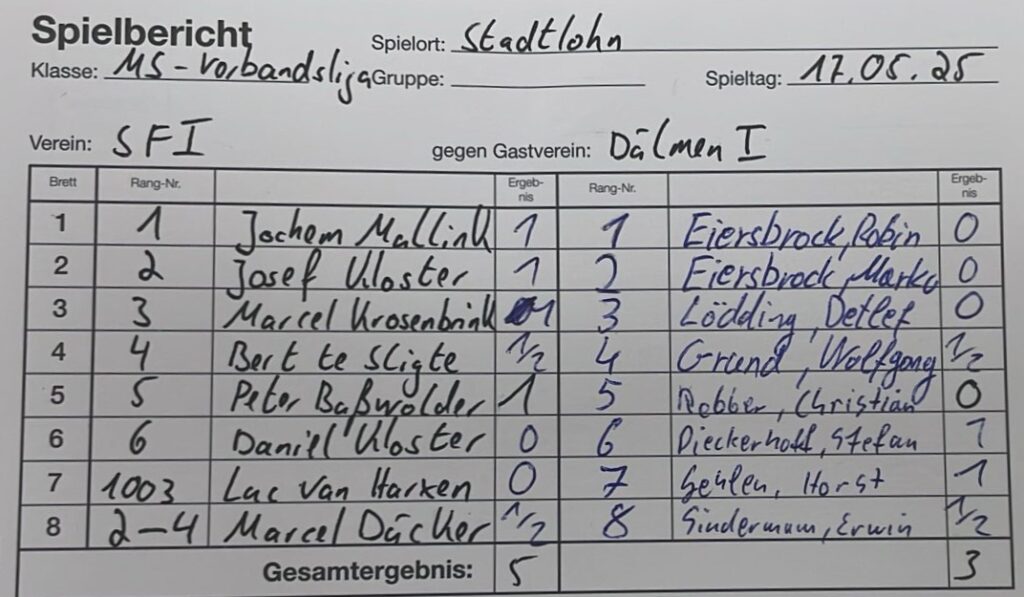 Spielbericht Spielort: Stadtlohn
Klasse: MS-Verbandsliga Gruppe: Spieltag: 17.05.25
Verein: SF I gegen Gastverein: Dülmen I
Brett Rang-Nr. Ergeb-nis Rang-Nr. Ergeb-nis
1 1 Jochem Mallink 1 1 Eiersbrock, Robin 0
2 2 Josef Kloster 1 2 Eiersbrock, Marko 0
3 3 Marcel Krosenbrink 1 3 Lödding, Detlef 0
4 4 Bert te Sligte 1/2 4 Grund, Wolfgang 1/2
5 5 Peter Baßwolder 1 5 Robber, Christian 0
6 6 Daniel Kloster 0 6 Dieckerhoff, Stefan 1
7 1003 Luc van Harxen 0 7 Horst 1
8 2-4 Marcel Däcker 1/2 8 Sindermann, Erwin 1/2
Gesamtergebnis: 5 3